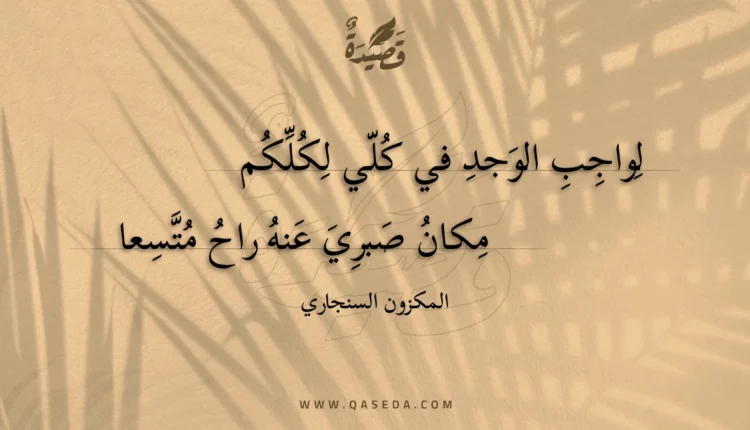 قَصِيْدَةٌ
لِواجِبِ الوَجدِ في كُلّي لِكُلِّكُم
مِكانُ صَبرِيَ عَنهُ راحُ مُتَّسِعا
المكزون السنجاري
WWW.QASEDA.COM